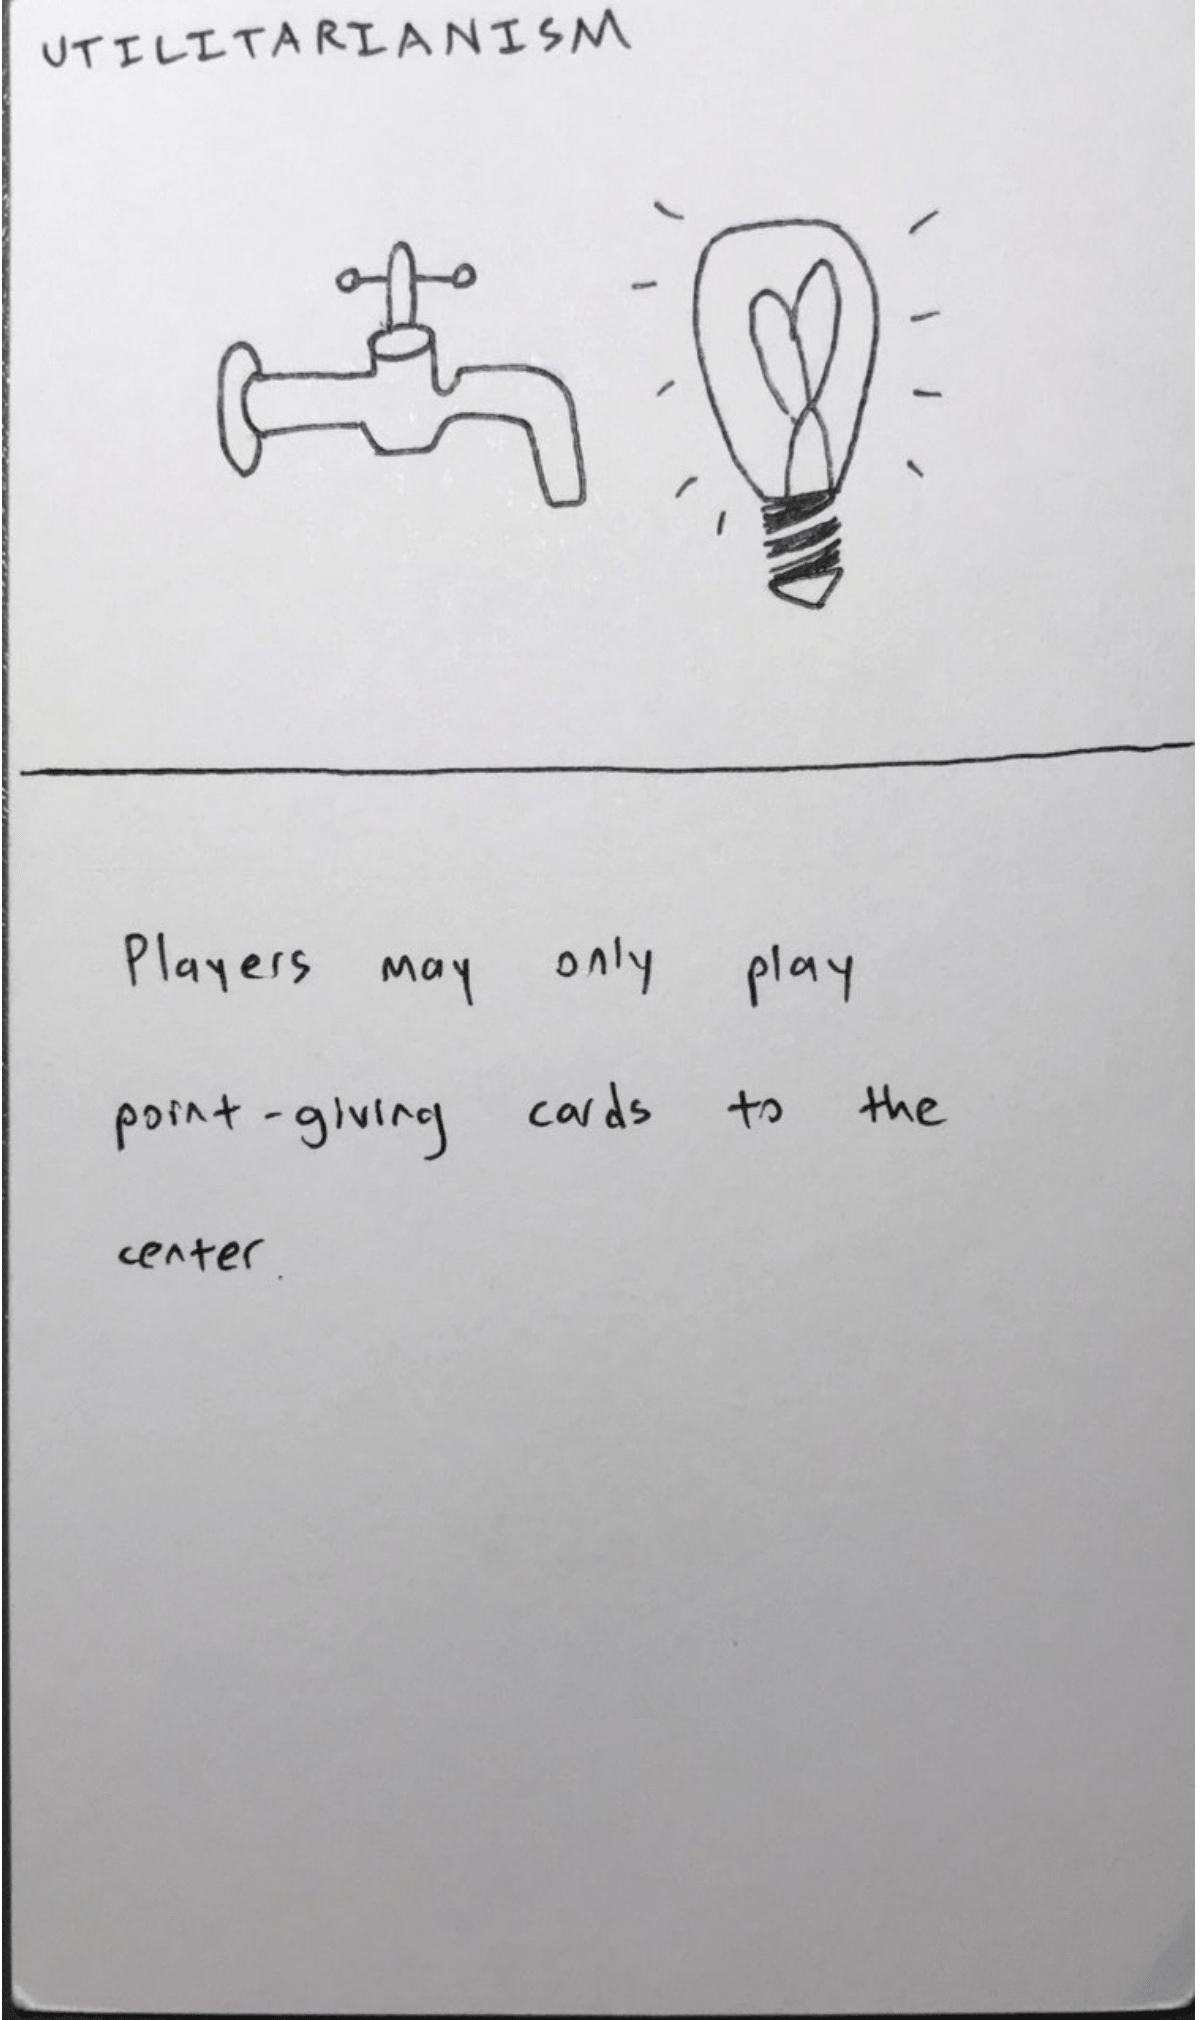 UTILITARIANISM
Players may only play
point-giving cards to the
center.